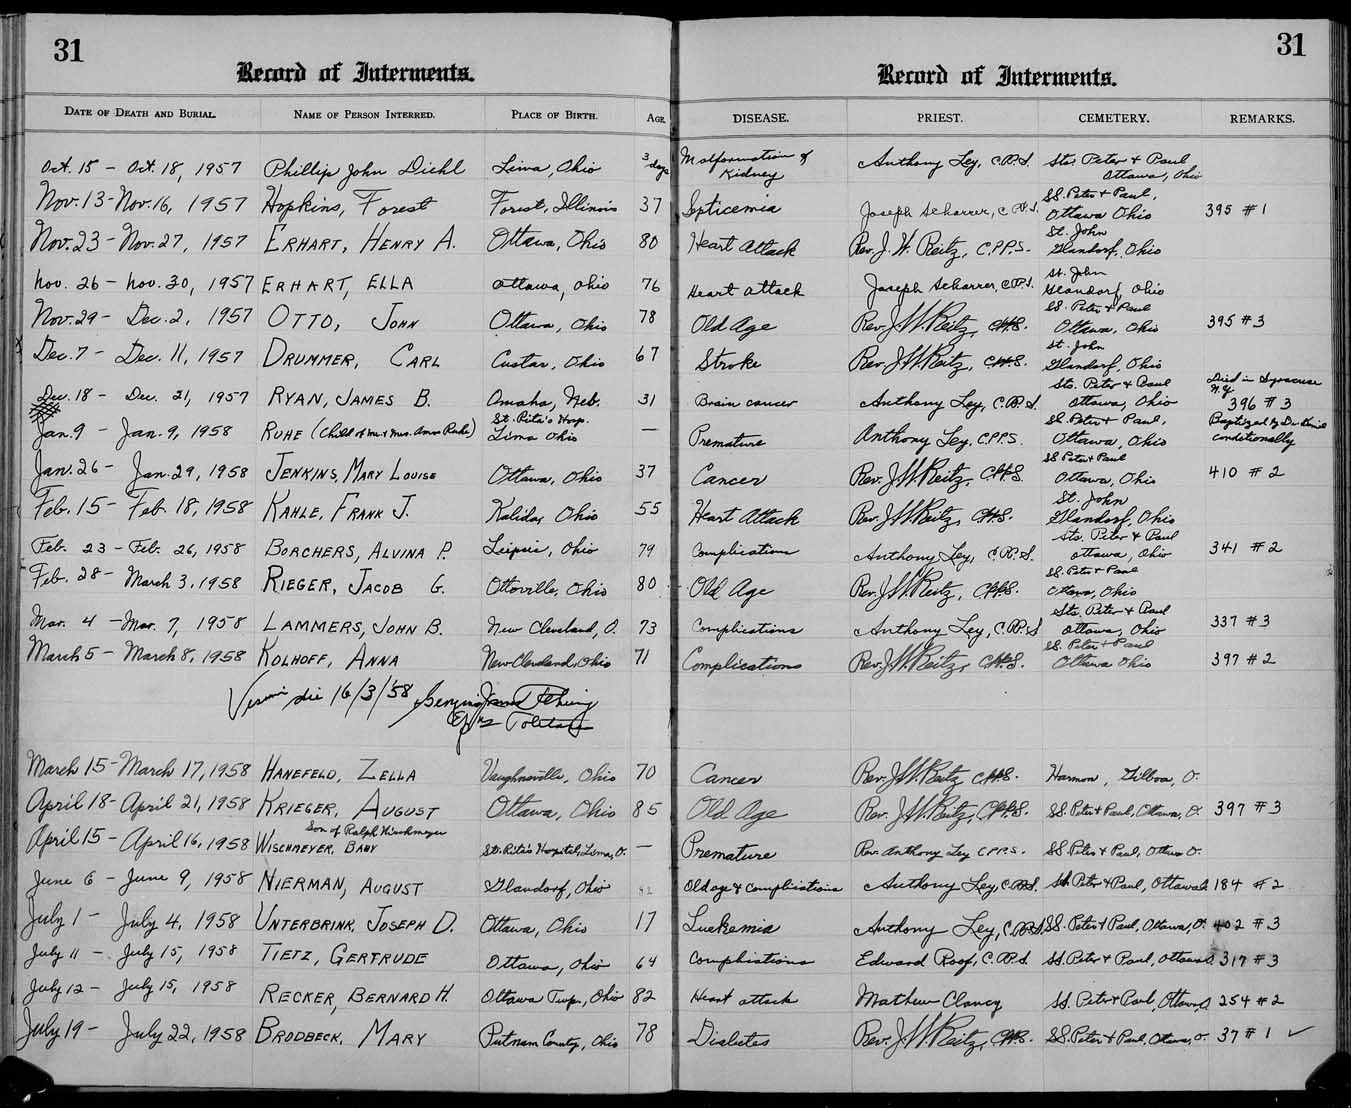 31
31
Record of Interments.
Record of Interments.
DATE OF DEATH AND BURIAL. NAME OF PERSON INTERRED. PLACE OF BIRTH. AGE. DISEASE. PRIEST. CEMETERY. REMARKS.
Oct. 15 - Oct. 18, 1957 Phillip John Diehl Lima, Ohio 3 days Malformation of Kidney Anthony Ley, C.PP.S. Sts. Peter & Paul Ottawa, Ohio
Nov. 13 - Nov. 16, 1957 Hopkins, Forest Forest, Illinois 37 Septicemia Joseph Scharrer, C.PP.S. SS. Peter & Paul, Ottawa Ohio 395 #1
Nov. 23 - Nov. 27, 1957 ERHART, HENRY A. Ottawa, Ohio 80 Heart Attack Rev. J. W. Reitz, C.PP.S. St. John Glandorf, Ohio
Nov. 26 - Nov. 30, 1957 ERHART, ELLA Ottawa, Ohio 76 Heart attack Joseph Scharrer, C.PP.S. St. John Glandorf, Ohio
Nov. 29 - Dec. 2, 1957 OTTO, JOHN Ottawa, Ohio 78 Old Age Rev. J.W. Reitz, C.PP.S. SS. Peter & Paul Ottawa, Ohio 395 #3
Dec. 7 - Dec. 11, 1957 DRUMMER, CARL Custar, Ohio 67 Stroke Rev. J.W. Reitz, C.PP.S. St. John Glandorf, Ohio
Dec. 18 - Dec. 21, 1957 RYAN, JAMES B. Omaha, Neb. 31 Brain cancer Anthony Ley, C.PP.S. Sts. Peter & Paul Ottawa, Ohio Died in Syracuse N.Y. 396 #3
Jan. 9 - Jan. 9, 1958 RUHE (Child of Mr & Mrs. Ruhe) St. Rita's Hosp. Lima Ohio — Premature Anthony Ley, C.PP.S. SS. Peter & Paul, Ottawa, Ohio Baptized by Dr. conditionally
Jan. 26 - Jan. 29, 1958 JENKINS, MARY LOUISE Ottawa, Ohio 37 Cancer Rev. J.W. Reitz, C.PP.S. SS Peter & Paul Ottawa, Ohio 410 #2
Feb. 15 - Feb. 18, 1958 KAHLE, FRANK J. Kalida, Ohio 55 Heart Attack Rev. J.W. Reitz, C.PP.S. St. John Glandorf, Ohio
Feb. 23 - Feb. 26, 1958 BORCHERS, ALVINA P. Leipsic, Ohio 79 Complications Anthony Ley, C.PP.S. Sts. Peter & Paul Ottawa, Ohio 341 #2
Feb. 28 - March 3, 1958 RIEGER, JACOB G. Ottoville, Ohio 80 Old Age Rev. J.W. Reitz, C.PP.S. SS. Peter & Paul Ottawa, Ohio
Mar. 4 - Mar. 7, 1958 LAMMERS, JOHN B. New Cleveland, O. 73 Complications Anthony Ley, C.PP.S. Sts. Peter & Paul Ottawa, Ohio 337 #3
March 5 - March 8, 1958 KOLHOFF, ANNA New Cleveland, Ohio 71 Complications Rev. J.W. Reitz, C.PP.S. SS. Peter & Paul Ottawa Ohio 397 #2
die 16/3/'58
March 15 - March 17, 1958 HANEFELD, ZELLA Vaughnsville, Ohio 70 Cancer Rev. J.W. Reitz C.PP.S. Harmon, Gilboa, O.
April 18 - April 21, 1958 KRIEGER, AUGUST Ottawa, Ohio 85 Old Age Rev. J.W. Reitz, C.PP.S. SS. Peter & Paul, Ottawa, O. 397 #3
Son of Ralph Wischmeyer
April 15 - April 16, 1958 WISCHMEYER, BABY St. Rita's Hospital, Lima, O. — Premature Rev. Anthony Ley C.PP.S. SS. Peter & Paul, Ottawa O.
June 6 - June 9, 1958 NIERMAN, AUGUST Glandorf, Ohio 82 Old age & complications Anthony Ley, C.PP.S. SS. Peter & Paul, Ottawa O. 184 #2
July 1 - July 4, 1958 UNTERBRINK, JOSEPH D. Ottawa, Ohio 17 Luekemia Anthony Ley, C.PP.S. SS. Peter & Paul, Ottawa, O. 402 #3
July 11 - July 15, 1958 TIETZ, GERTRUDE Ottawa, Ohio 64 Complications Edward Roof, C.PP.S. SS. Peter & Paul, Ottawa O. 317 #3
July 12 - July 15, 1958 RECKER, BERNARD H. Ottawa Twp., Ohio 82 Heart attack Mathew Clancy SS. Peter & Paul, Ottawa, O. 254 #2
July 19 - July 22, 1958 BRODBECK, MARY Putnam County, Ohio 78 Diabetes Rev. J.W. Reitz, C.PP.S. SS. Peter & Paul, Ottawa, O. 37 #1 ✓